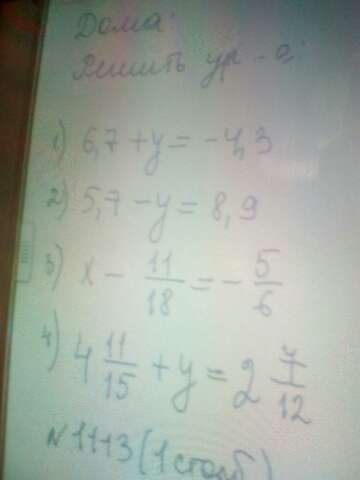 Дома:
Решить ур-я:
1) 6,7 + y = -4,3
2) 5,7 - y = 8,9
3) x - 11/18 = - 5/6
4) 4 11/15 + y = 2 7/12
№1113 (1 столб)